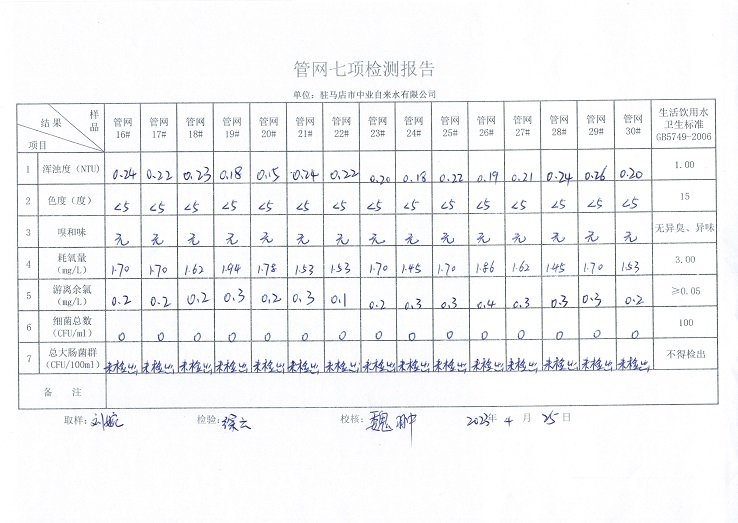 管网七项检测报告
单位：驻马店市中业自来水有限公司
结果 样品 项目 管网16# 管网17# 管网18# 管网19# 管网20# 管网21# 管网22# 管网23# 管网24# 管网25# 管网26# 管网27# 管网28# 管网29# 管网30# 生活饮用水卫生标准GB5749-2006
1 浑浊度（NTU） 0.24 0.22 0.23 0.18 0.15 0.24 0.22 0.20 0.18 0.22 0.19 0.21 0.24 0.26 0.20 1.00
2 色度（度） <5 <5 <5 <5 <5 <5 <5 <5 <5 <5 <5 <5 <5 <5 <5 15
3 嗅和味 无 无 无 无 无 无 无 无 无 无 无 无 无 无 无 无异臭、异味
4 耗氧量（mg/L） 1.70 1.70 1.62 1.94 1.78 1.53 1.53 1.70 1.45 1.70 1.86 1.62 1.45 1.70 1.53 3.00
5 游离余氯（mg/L） 0.2 0.2 0.2 0.3 0.2 0.3 0.1 0.2 0.3 0.3 0.4 0.3 0.3 0.3 0.2 ≥0.05
6 细菌总数（CFU/ml） 0 0 0 0 0 0 0 0 0 0 0 0 0 0 0 100
7 总大肠菌群（CFU/100ml） 未检出 未检出 未检出 未检出 未检出 未检出 未检出 未检出 未检出 未检出 未检出 未检出 未检出 未检出 未检出 不得检出
备 注
取样： 检验：徐云 校核：魏翀 2023年 4 月 25 日